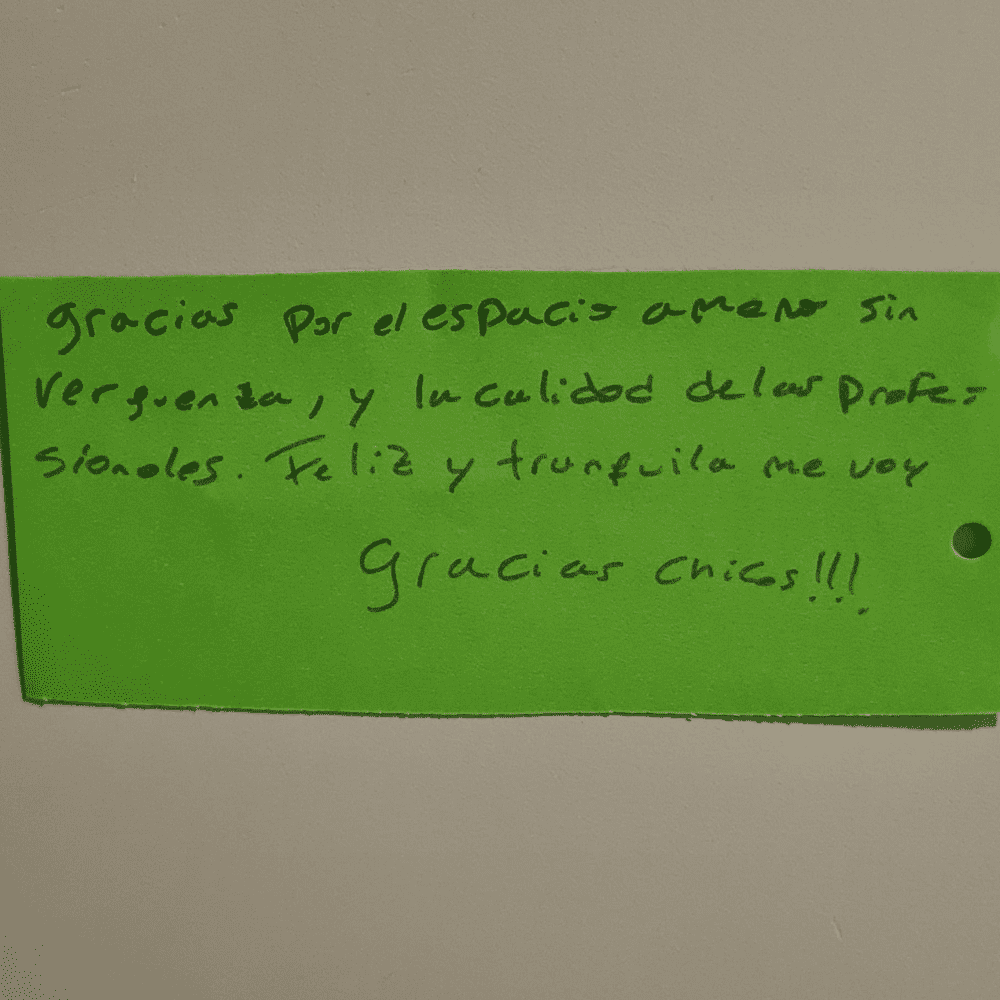 gracias por el espacio ameno sin
verguenza, y la calidad de las profe-
sionales. Feliz y tranquila me voy
Gracias chicos!!!